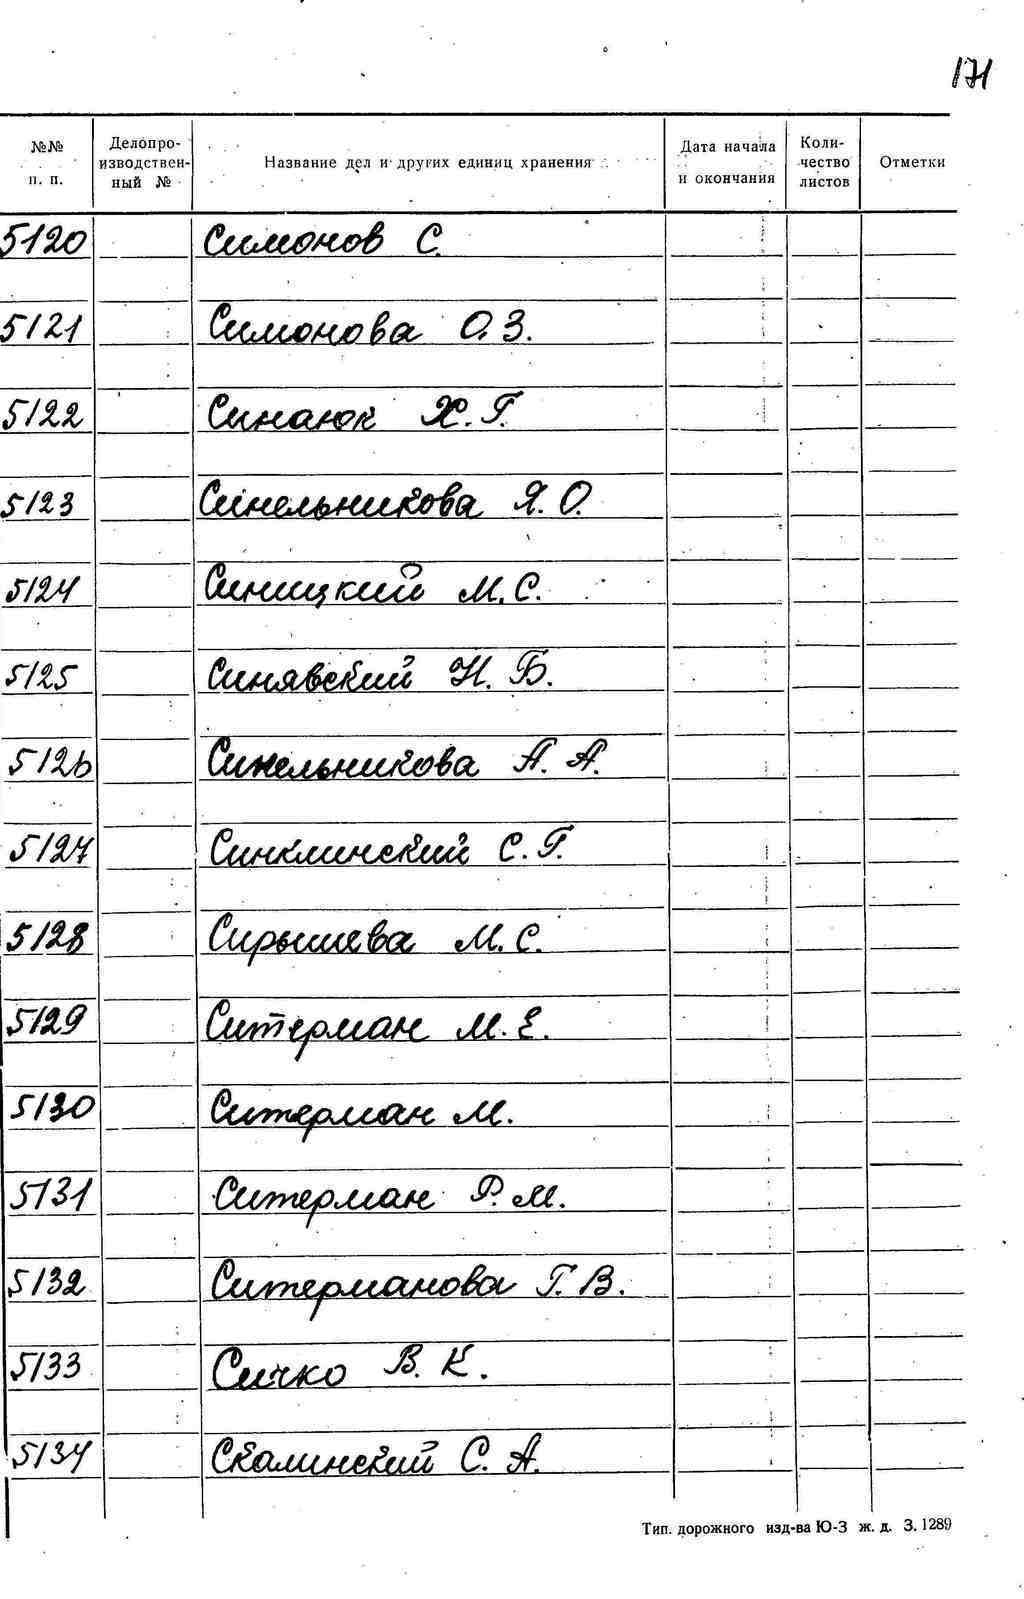 171
№№ п. п.
Делопро-
изводствен-
ный №
Название дел и других единиц хранения
Дата начала
и окончания
Коли-
чество
листов
Отметки
5120 Симонов С.
5121 Симонова О.З.
5122 Синаюк Х.Г.
5123 Синельникова Я.О.
5124 Синицкий М.С.
5125 Синявский Н.Б.
5126 Синельникова А.А.
5127 Синклинский С.Г.
5128 Сирышева М.С.
5129 Ситерман М.Е.
5130 Ситерман М.
5131 Ситерман Р.М.
5132 Ситерманова Г.В.
5133 Сичко В.К.
5134 Скалинский С.А.
Тип. дорожного изд-ва Ю-З ж. д. З. 1289